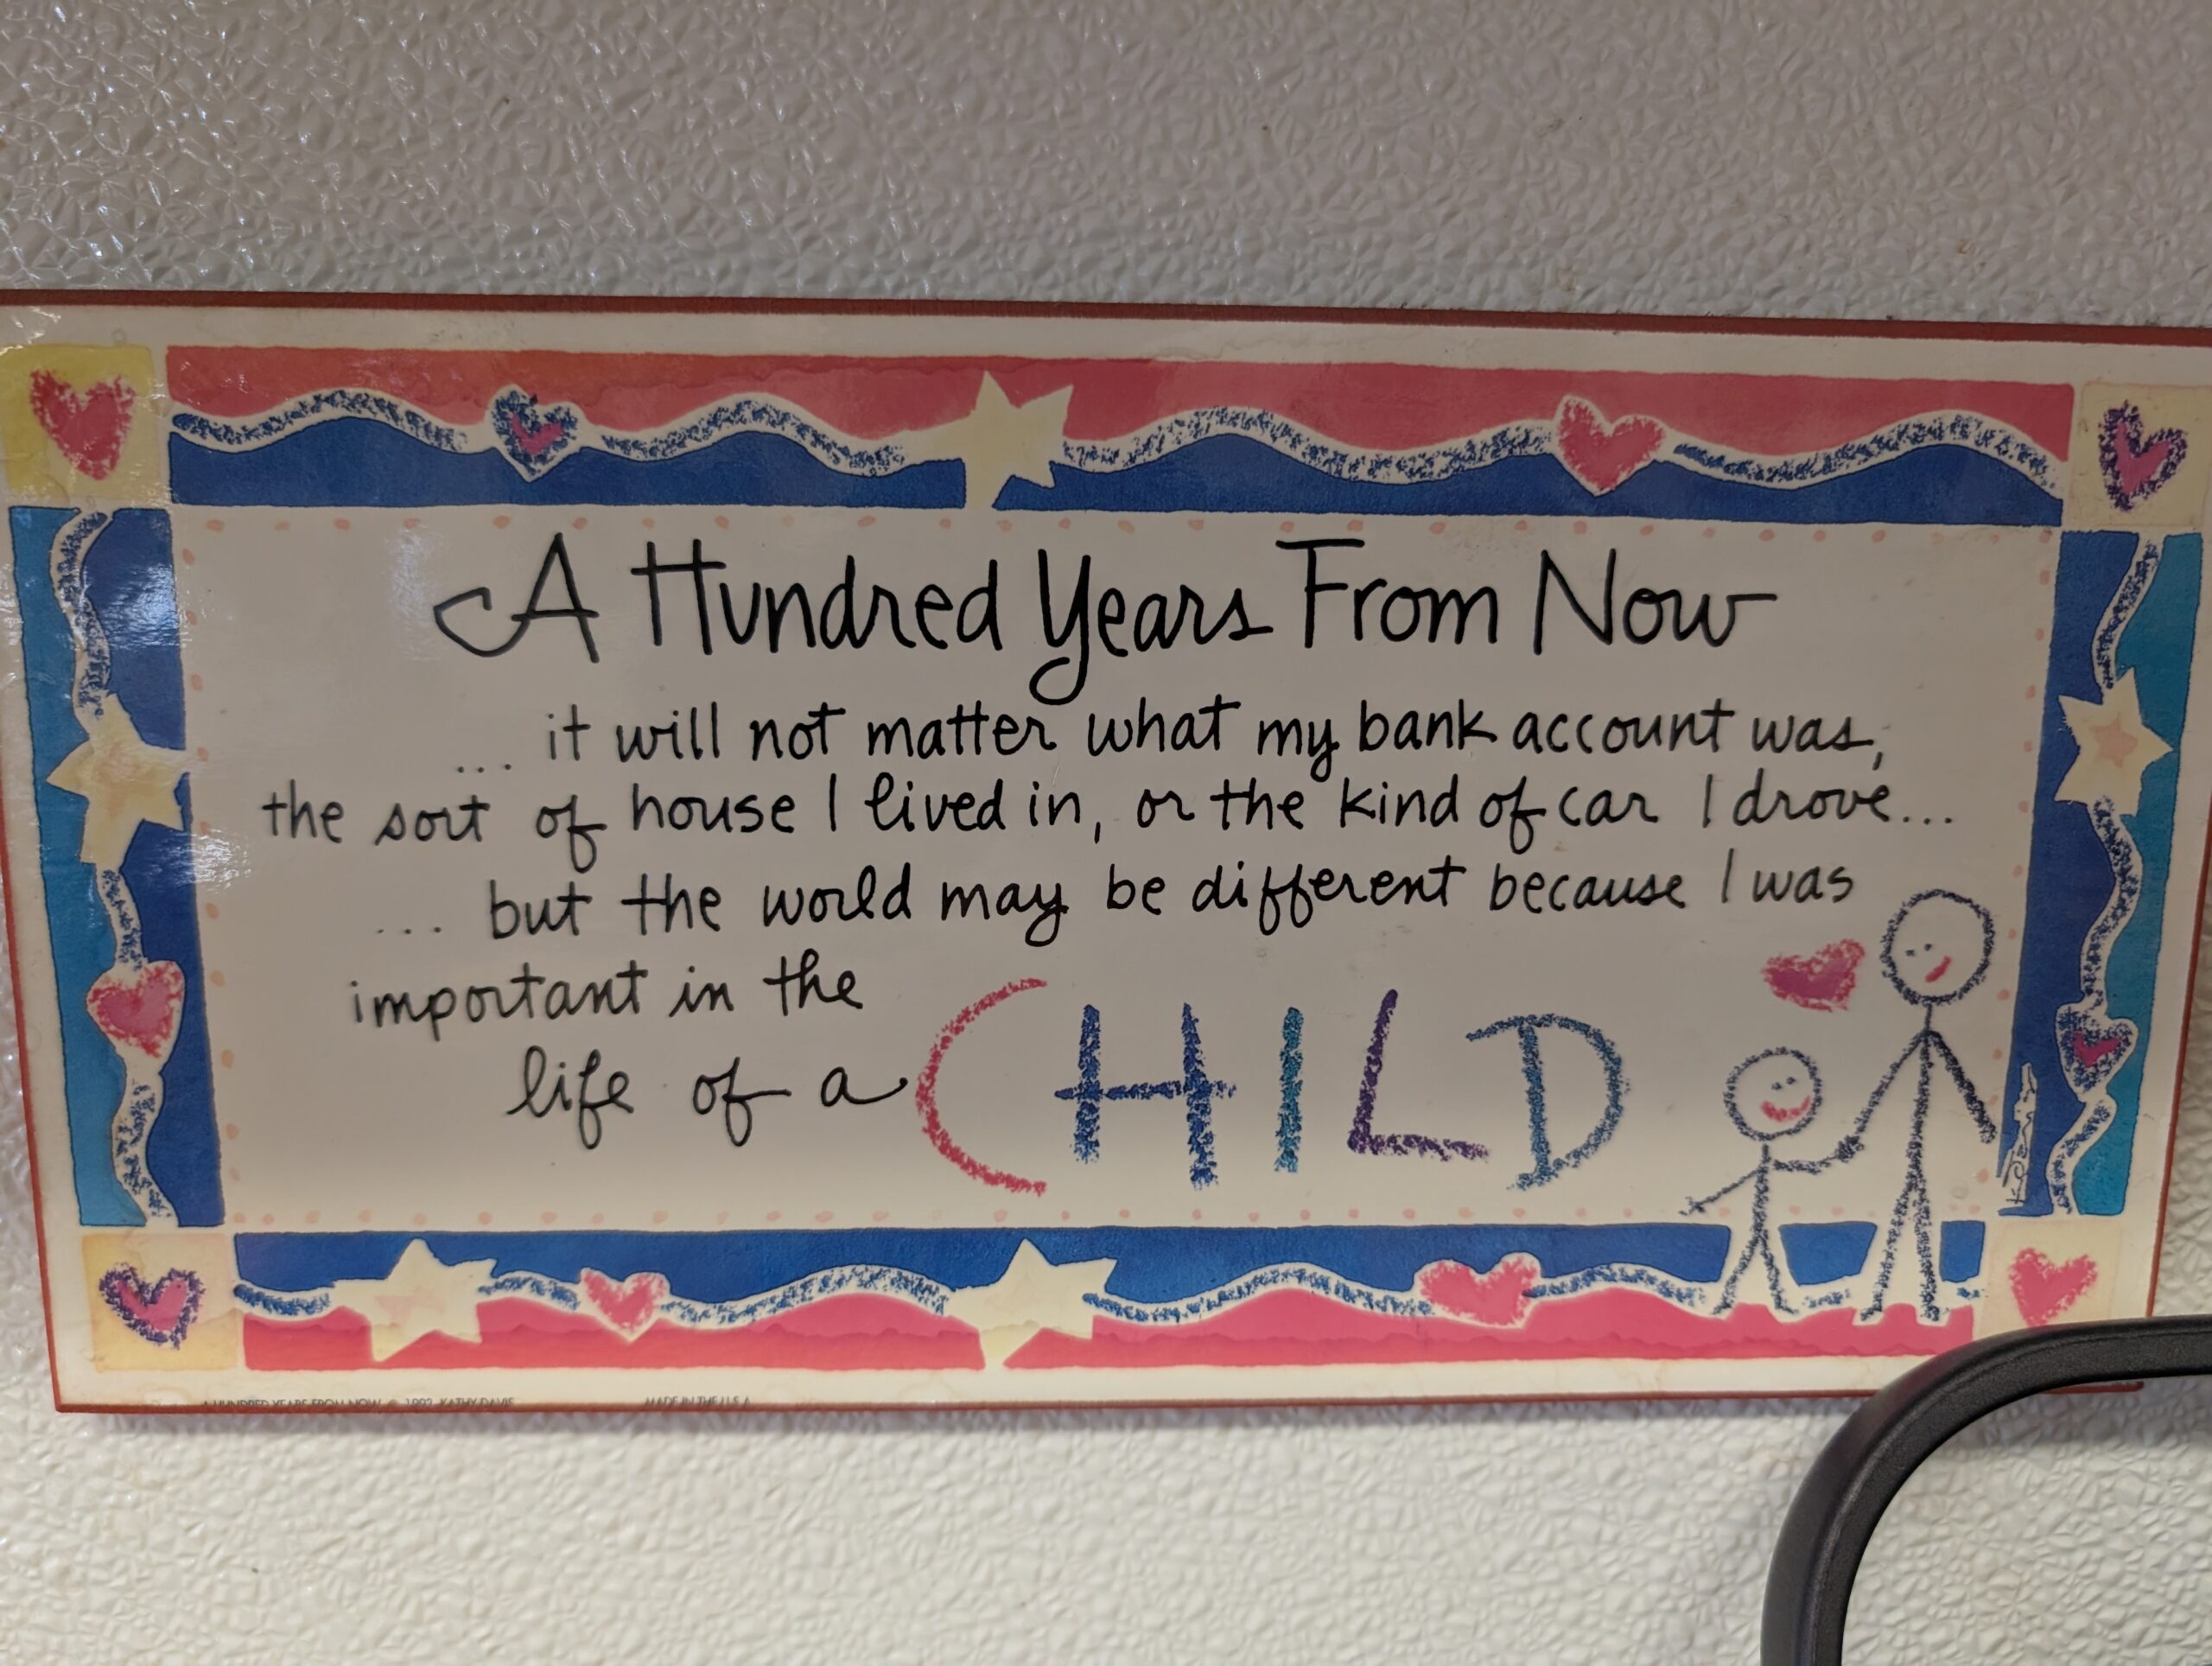 A Hundred Years From Now
... it will not matter what my bank account was,
the sort of house I lived in, or the kind of car I drove...
... but the world may be different because I was
important in the
life of a CHILD
A HUNDRED YEARS FROM NOW © 1992 KATHY DAVIS MADE IN THE U.S.A.